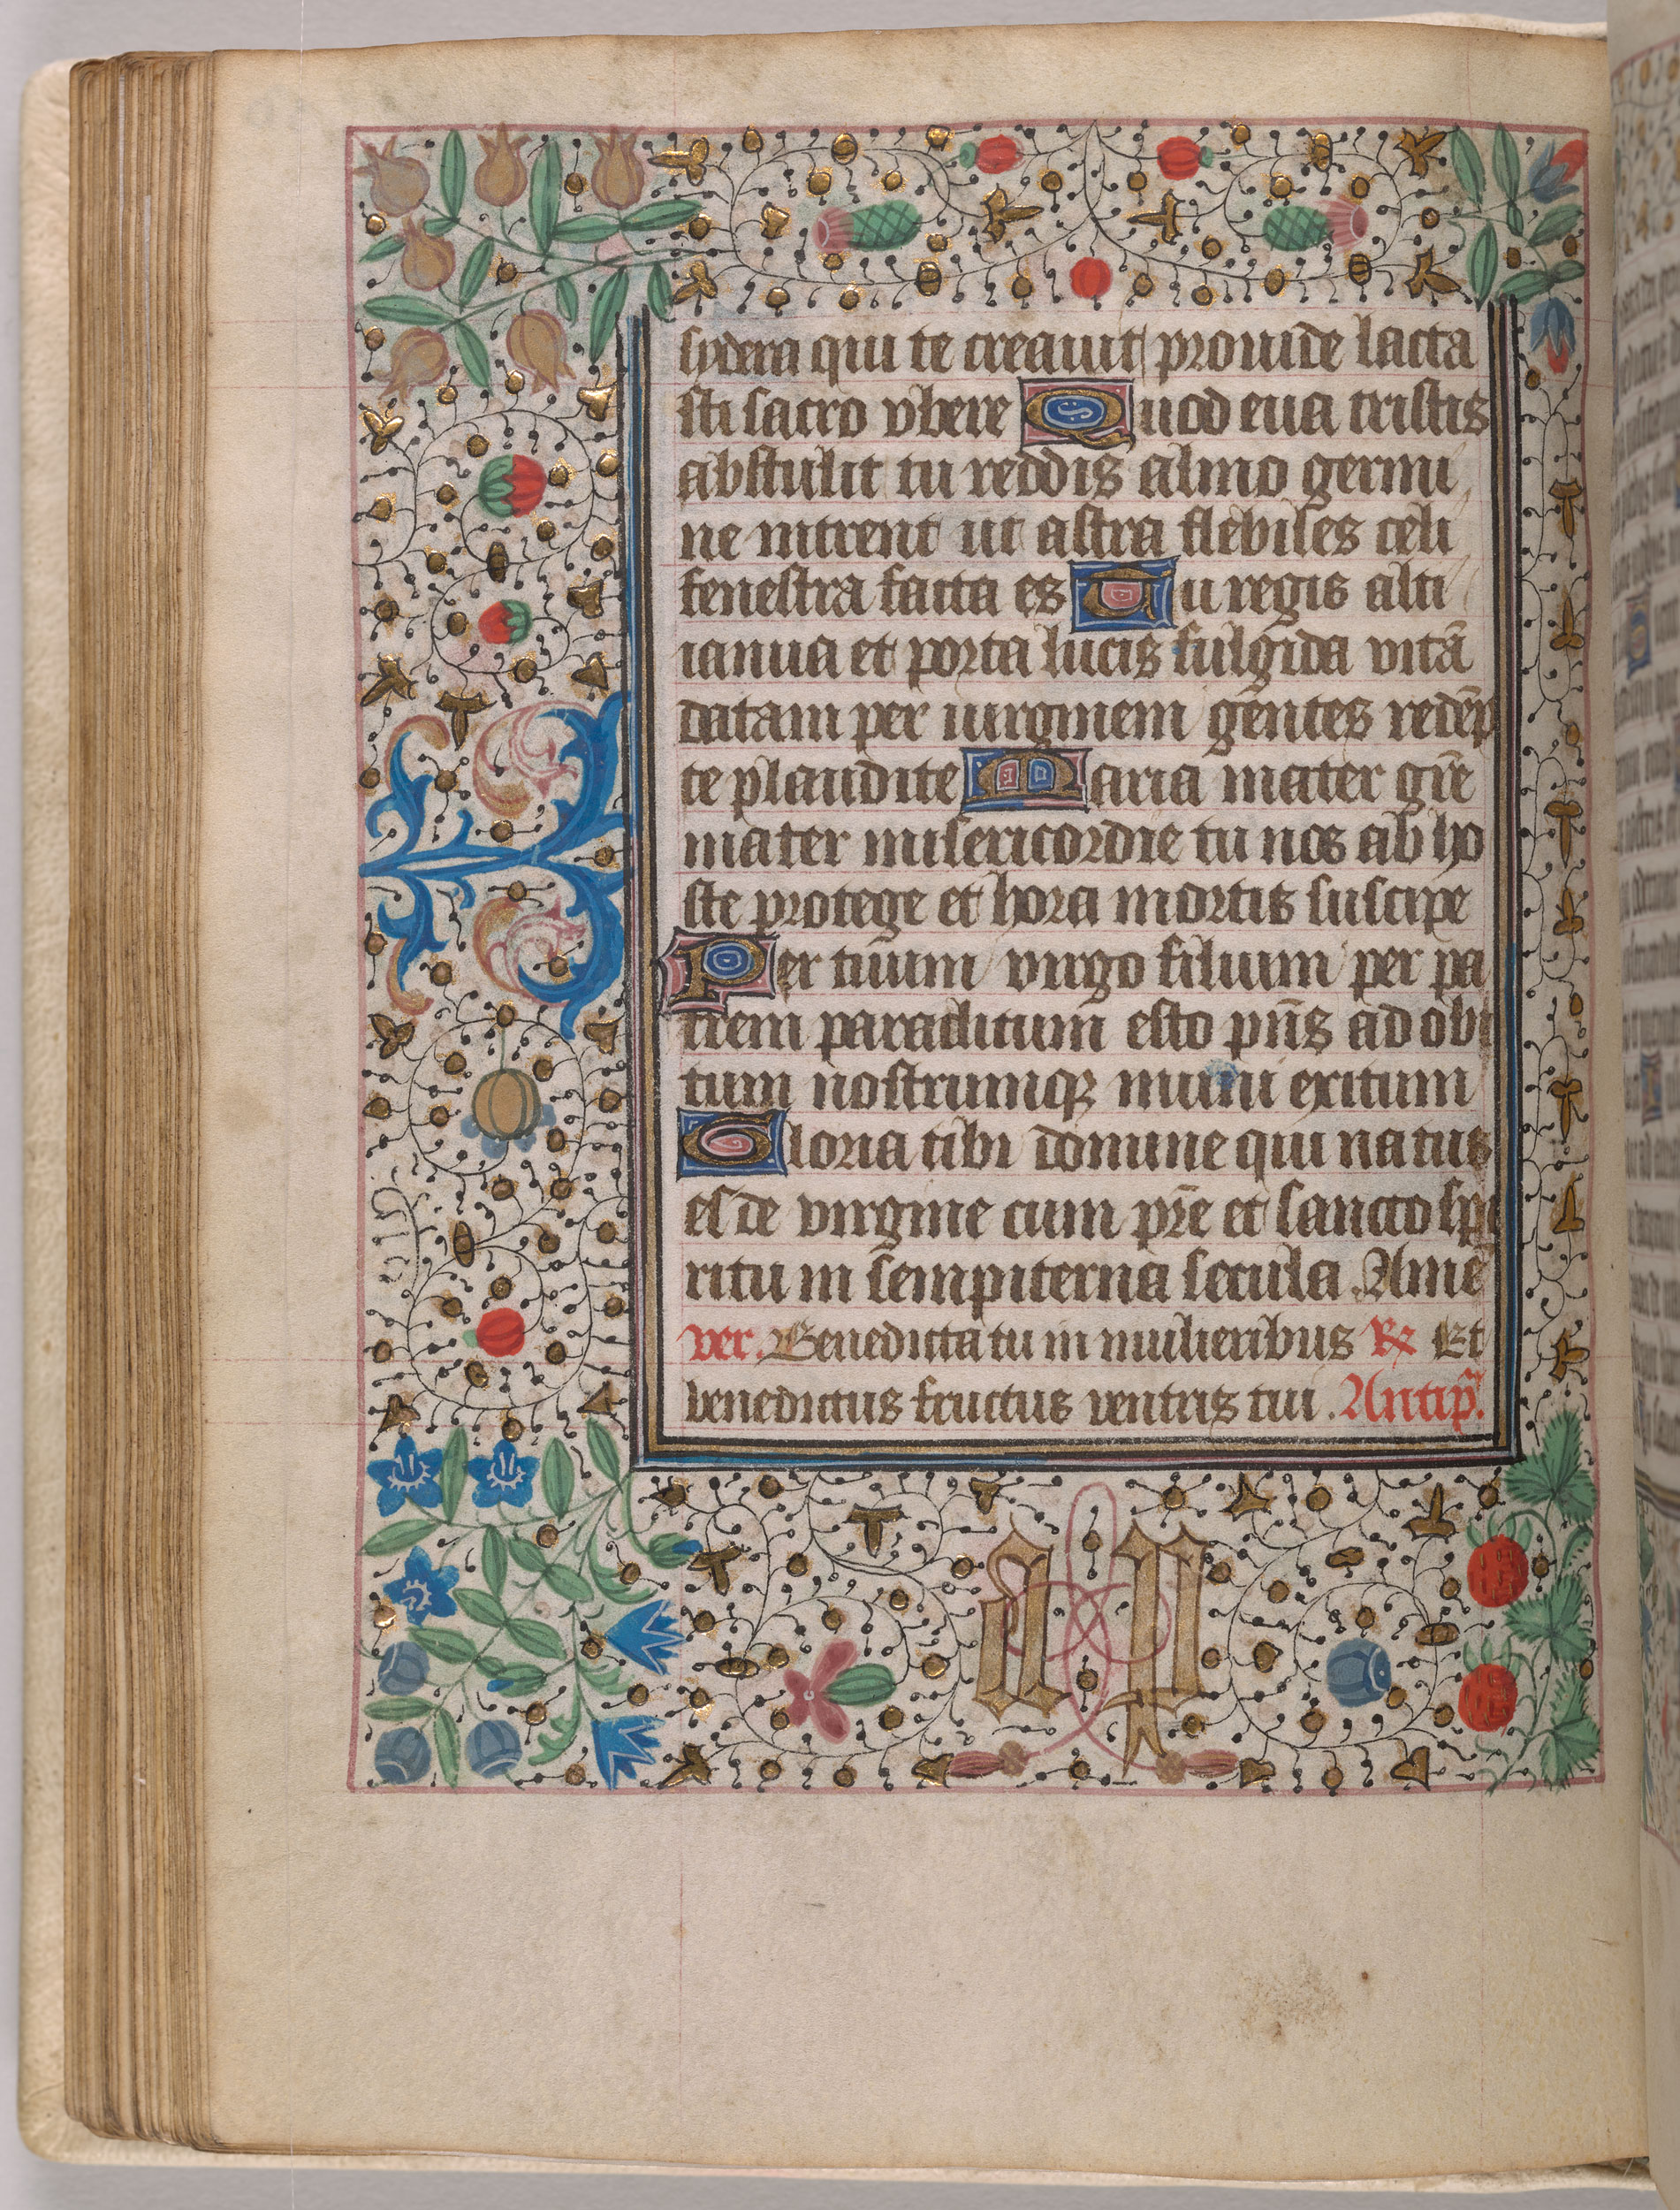 sydera qui te creauit prouide lacta
sti sacro vbere Quod eua tristis
abstulit tu reddis almo germi
ne intrent ut astra flebiles celi
fenestra facta es Tu regis alti
ianua et porta lucis fulgida vitã
datam per uirginem gentes redẽp
te plaudite Maria mater grẽ
mater misericordie tu nos ab ho
ste protege et hora mortis suscipe
Per tuum virgo filium per pa
trem paraclitum esto pñs ad obi
tum nostrumqz muni exitum
Gloria tibi domine qui natus
es de virgine cum pr̃e et sancto spi
ritu in sempiterna secula Amẽ
ver. Benedicta tu in mulieribus ℟ Et
benedictus fructus ventris tui. Antip̃.
a P